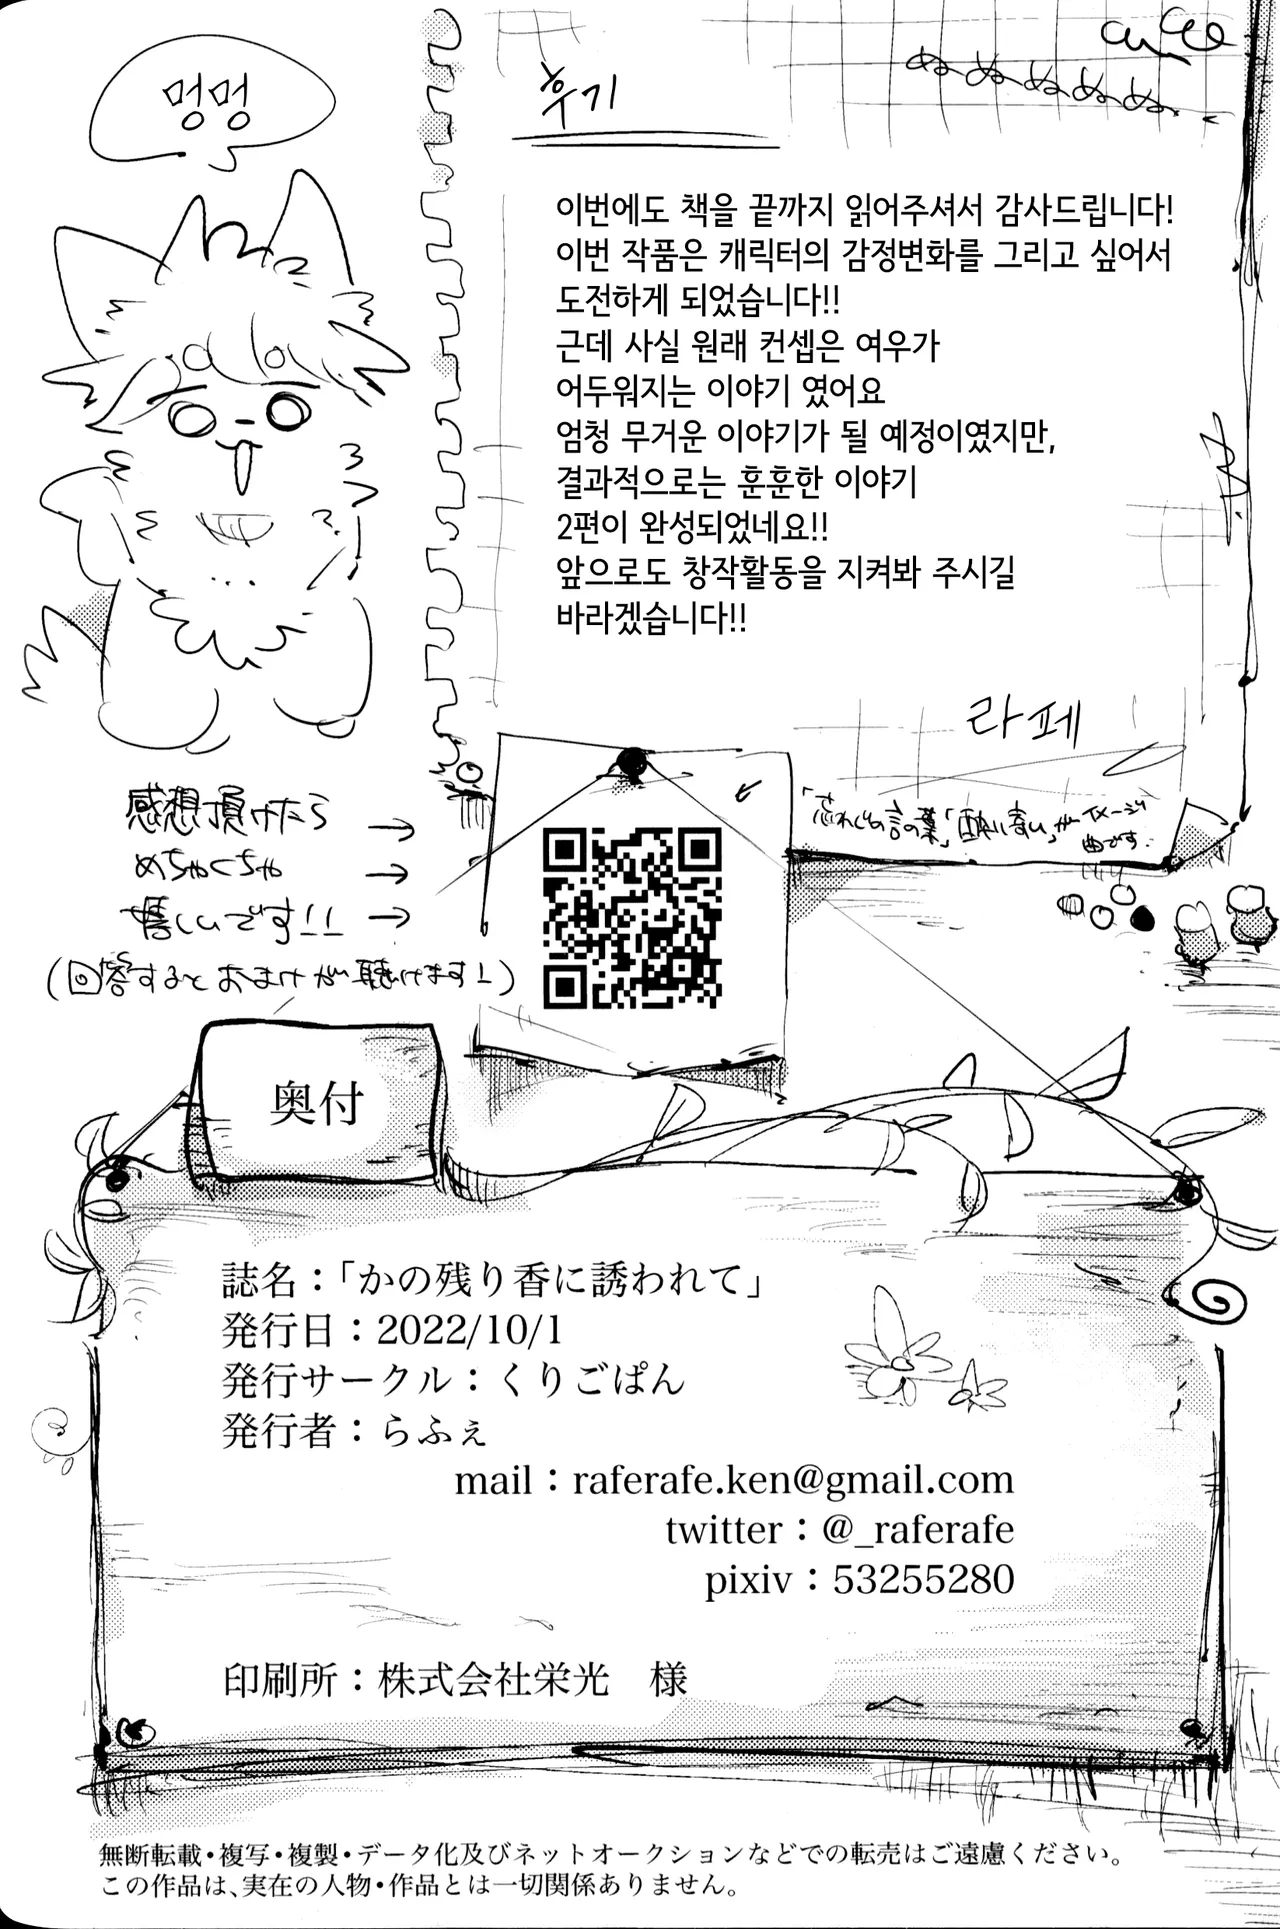 멍멍
후기
ぬぬぬぬぬ
이번에도 책을 끝까지 읽어주셔서 감사드립니다!
이번 작품은 캐릭터의 감정변화를 그리고 싶어서
도전하게 되었습니다!!
근데 사실 원래 컨셉은 여우가
어두워지는 이야기 였어요
엄청 무거운 이야기가 될 예정이였지만,
결과적으로는 훈훈한 이야기
2편이 완성되었네요!!
앞으로도 창작활동을 지켜봐 주시길
바라겠습니다!!
라페
感想頂けたら →
めちゃくちゃ →
嬉しいです!! →
(回答するとおまけが聴けます!)
「忘れじの言の葉」「酔いどれ」がイメージ
曲です。
奥付
誌名：「かの残り香に誘われて」
発行日：2022/10/1
発行サークル：くりごぱん
発行者：らふぇ
mail：raferafe.ken@gmail.com
twitter：@_raferafe
pixiv：53255280
印刷所：株式会社栄光　様
無断転載・複写・複製・データ化及びネットオークションなどでの転売はご遠慮ください。
この作品は、実在の人物・作品とは一切関係ありません。